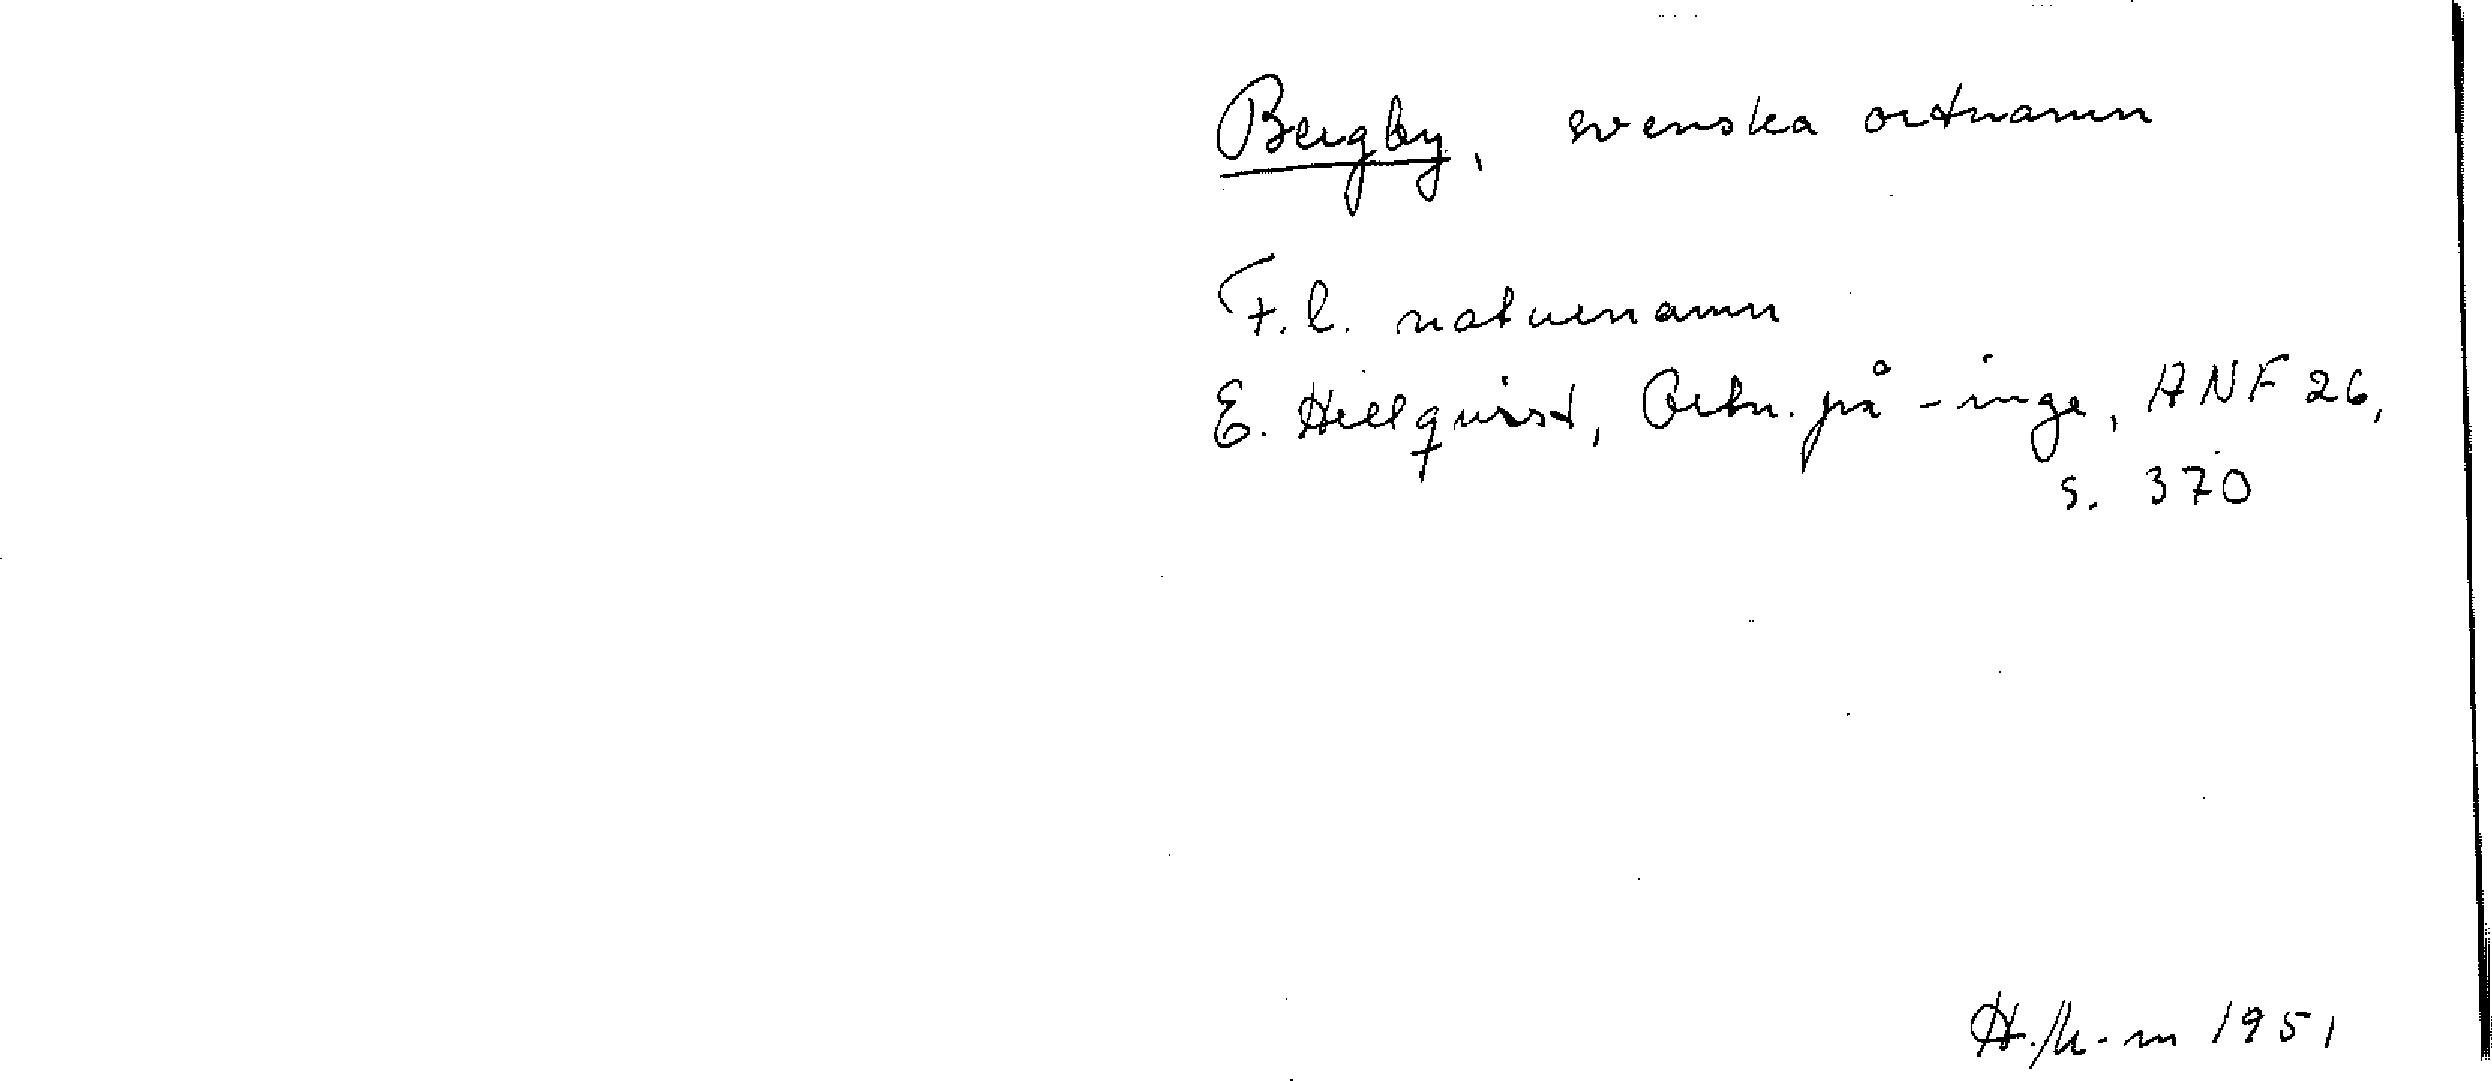 Bergby, svenska ortnamn
F.l. naturnamn
E. Hellquist, Ortn. på -inge, ANF 26,
s. 370
1951